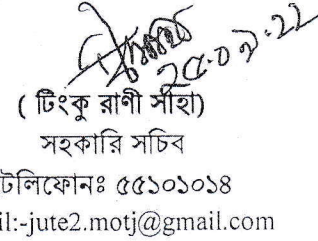 ২৫.০৯.২২
( টিংকু রাণী সীহা)
সহকারি সচিব
টেলিফোনঃ ৫৫১০১০১৪
il:-jute2.motj@gmail.com